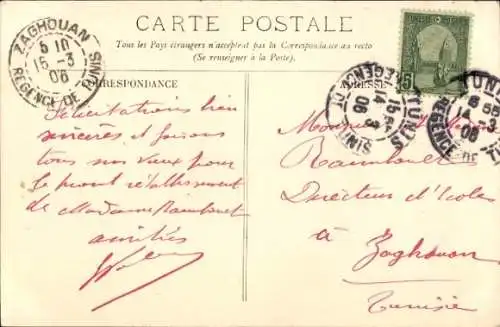 CARTE POSTALE
Tous les Pays étrangers n'acceptent pas la Correspondance au recto
(Se renseigner à la Poste).
CORRESPONDANCE
ADRESSE
ZAGHOUAN
5 10
15 -3
06
REGENCE DE TUNIS
Félicitations bien
sincères et faisons
tous nos vœux pour
le prompt rétablissement
de Madame Rambouret
amitiés
Monsieur et Madame
Directeur d'Ecoles
à
Zaghouan
Tunisie
5
TUNIS
14 -3
06
REGENCE DE TUNIS
TUNIS
14 -3
06
REGENCE DE